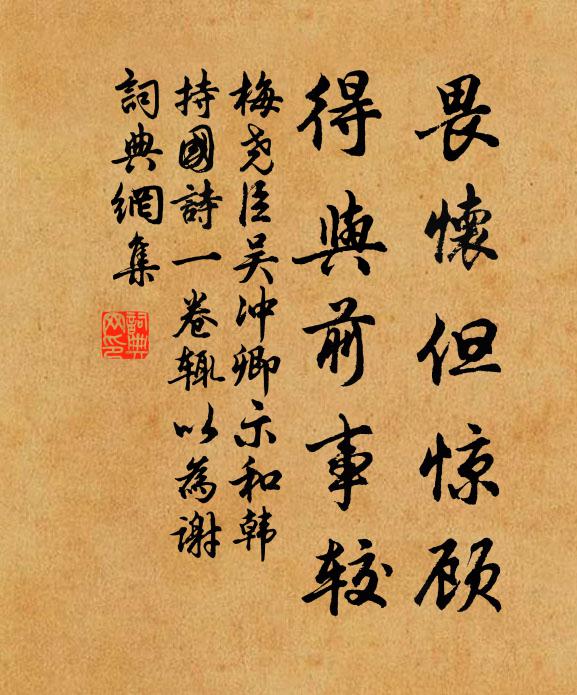 畏懷但惊顾
得與前事较
梅尧臣吴冲卿示和韩
持國詩一卷辄以為谢
詞典網集
詞典
网印